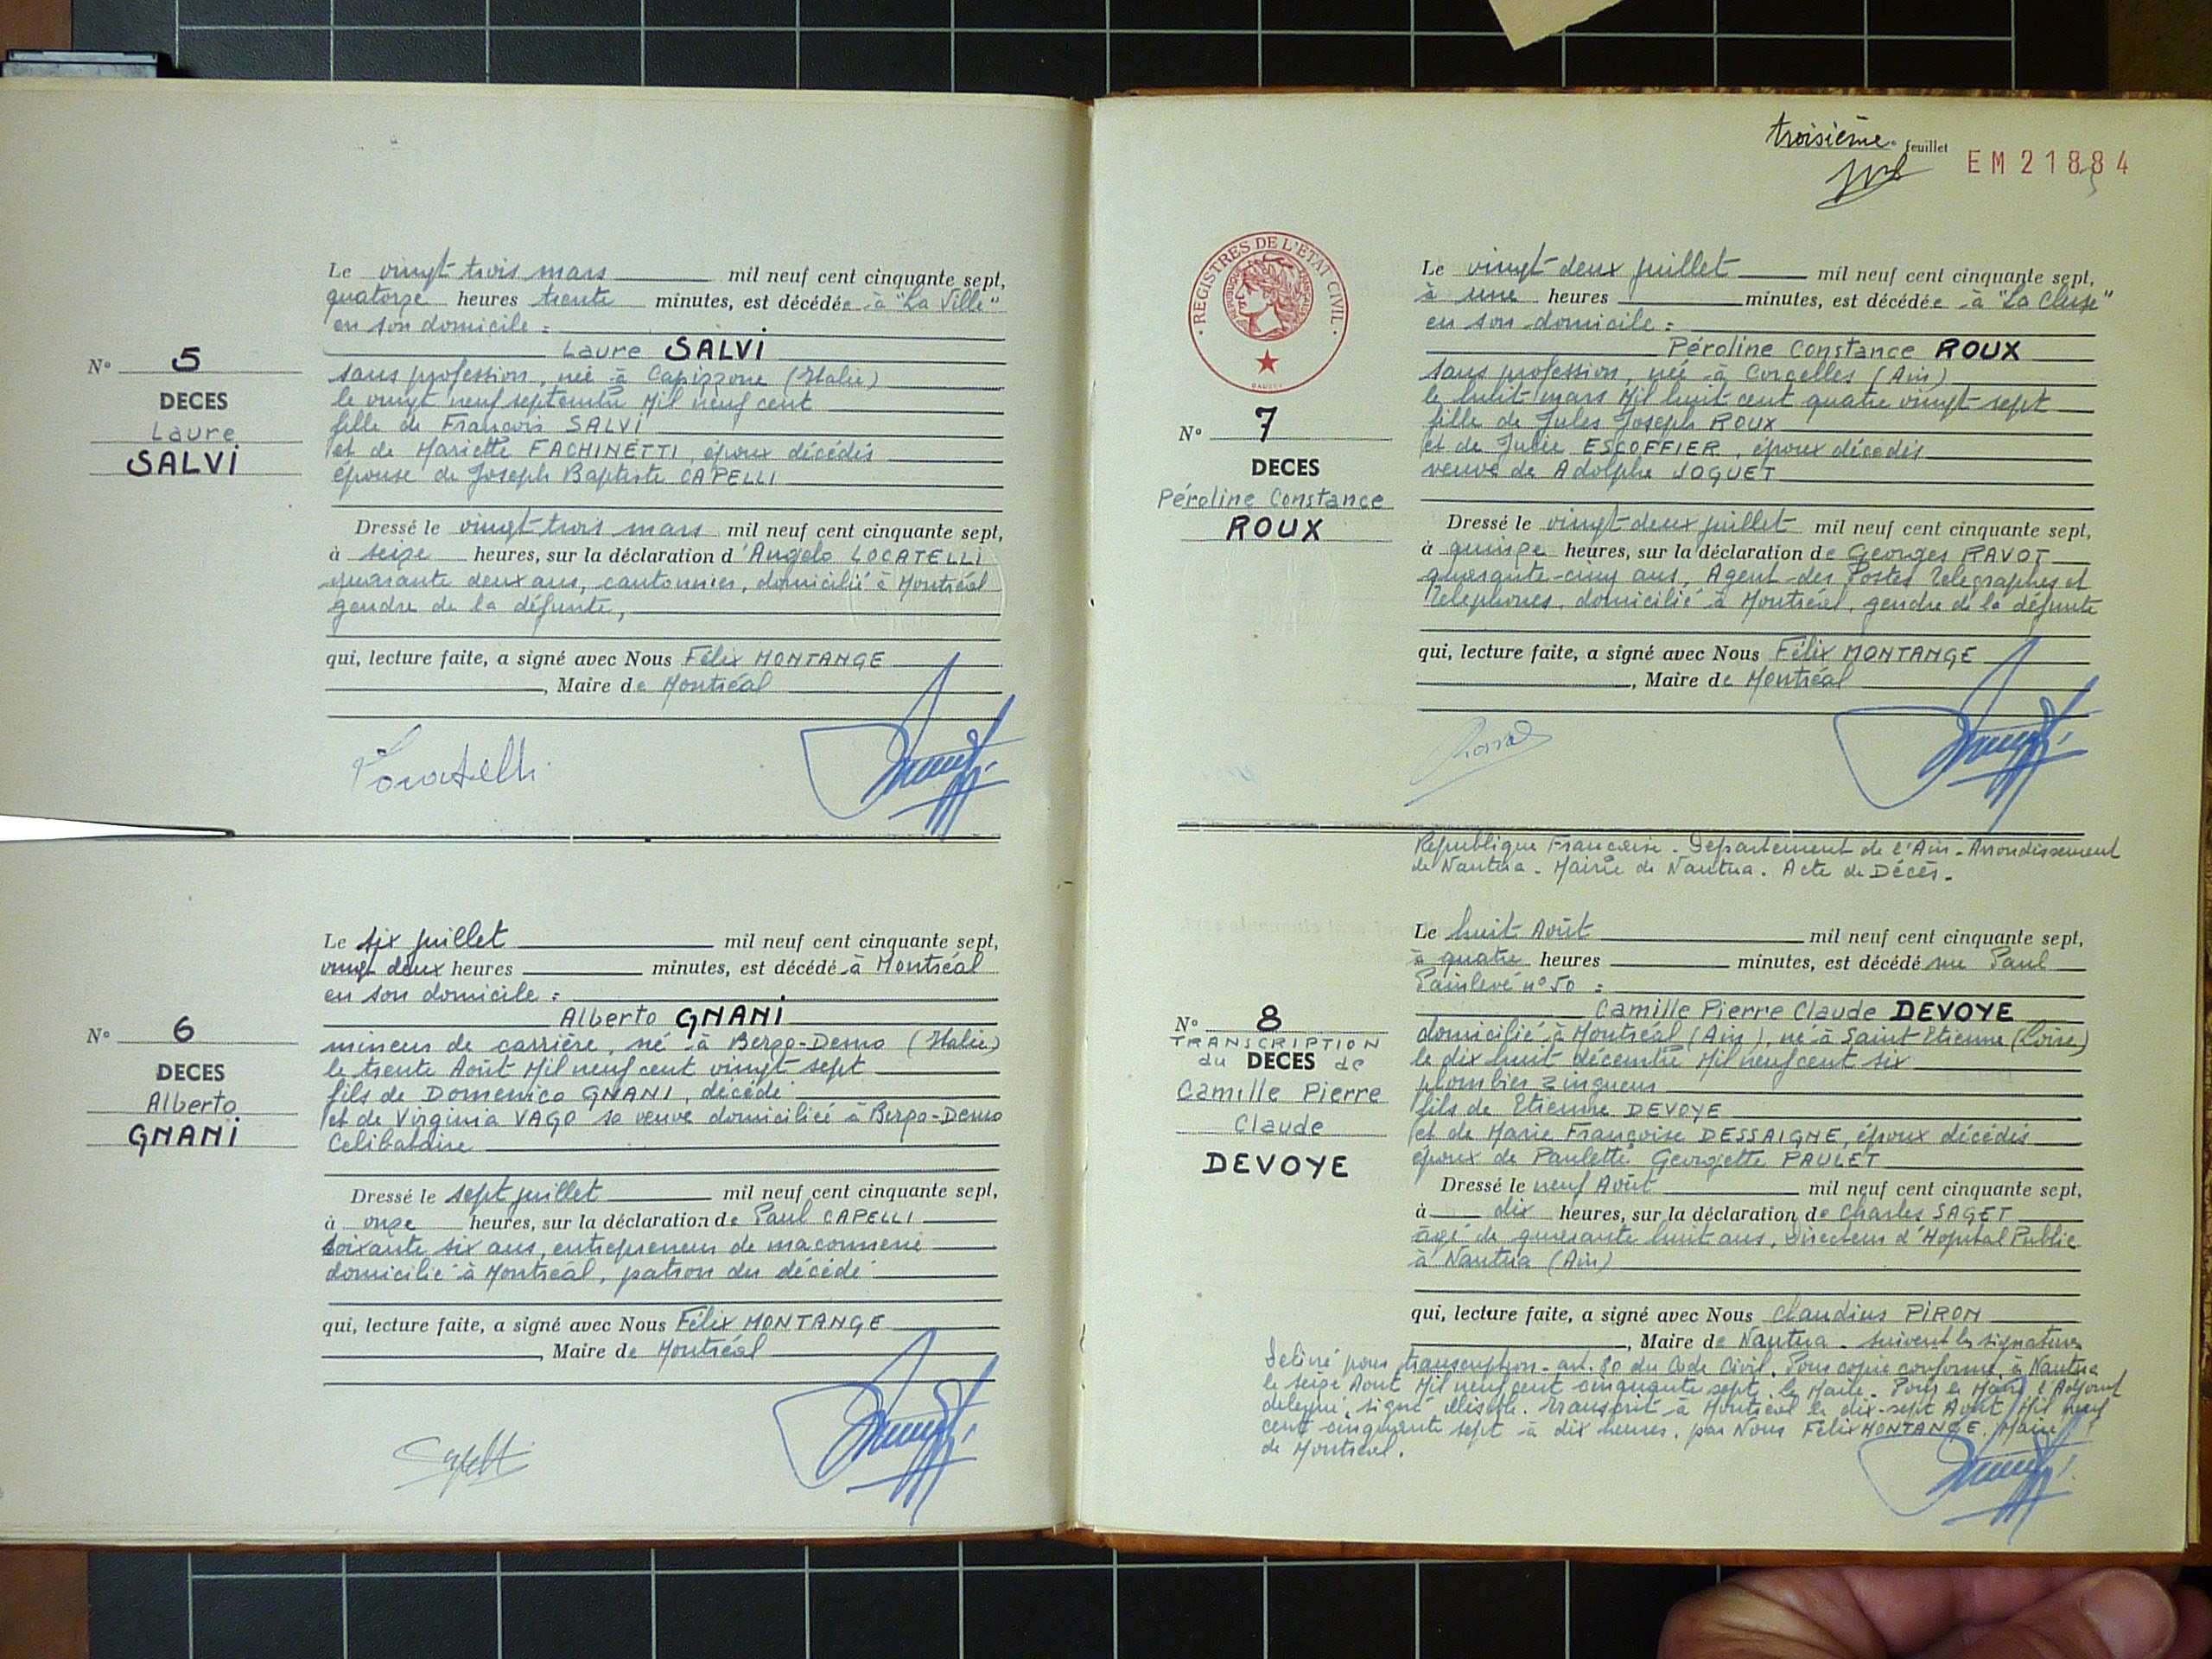 Le vingt trois mars mil neuf cent cinquante sept,
quatorze heures trente minutes, est décédée à "La Ville"
en son domicile :
Laure SALVI
sans profession, née à Capizzone (Italie)
le vingt neuf septembre Mil neuf cent
fille de François SALVI
et de Mariette FACHINETTI, époux décédés
épouse de Joseph Baptiste CAPELLI
N° 5
DECES
Laure
SALVI
Dressé le vingt-trois mars mil neuf cent cinquante sept,
à seize heures, sur la déclaration d'Angelo LOCATELLI
quarante deux ans, cantonnier, domicilié à Montréal
gendre de la défunte,
qui, lecture faite, a signé avec Nous Félix MONTANGE
, Maire de Montréal
Locatelli
Le six juillet mil neuf cent cinquante sept,
vingt deux heures minutes, est décédé à Montréal
en son domicile :
Alberto GNANI
mineur de carrière, né à Berzo-Demo (Italie)
le trente Août Mil neuf cent vingt sept
fils de Domenico GNANI, décédé
et de Virginia VAGO sa veuve domiciliée à Berzo-Demo
Celibataire
N° 6
DECES
Alberto
GNANI
Dressé le sept juillet mil neuf cent cinquante sept,
à onze heures, sur la déclaration de Paul CAPELLI
soixante six ans, entrepreneur de maconnerie
domicilié à Montréal, patron du décédé
qui, lecture faite, a signé avec Nous Félix MONTANGE
, Maire de Montréal
troisième feuillet
EM 21884
REGISTRES DE L'ETAT CIVIL
Le vingt-deux juillet mil neuf cent cinquante sept,
à une heures minutes, est décédée à "La Cluse"
en son domicile :
Péroline Constance ROUX
sans profession, née à Corcelles (Ain)
le huit mars Mil huit cent quatre vingt sept
fille de Jules Joseph ROUX
et de Julie ESCOFFIER, époux décédés
veuve de Adolphe JOGUET
N° 7
DECES
Péroline Constance
ROUX
Dressé le vingt-deux juillet mil neuf cent cinquante sept,
à quinze heures, sur la déclaration de Georges RAVOT
quarante-cinq ans, Agent des Postes Telegraphes et
Telephones, domicilié à Montréal, gendre de la défunte
qui, lecture faite, a signé avec Nous Félix MONTANGE
, Maire de Montréal
Republique Francaise - Departement de l'Ain - Arrondissement
de Nantua - Mairie de Nantua. Acte de Décès -
Le huit Août mil neuf cent cinquante sept,
à quatre heures minutes, est décédé rue Paul
Painlevé n° 50 :
Camille Pierre Claude DEVOYE
domicilié à Montréal (Ain), né à Saint Etienne (Loire)
le dix huit décembre Mil neuf cent six
plombier zingueur
fils de Etienne DEVOYE
et de Marie Françoise DESSAIGNE, époux décédés
époux de Paulette Georgette PAULET
N° 8
TRANSCRIPTION
du DECES de
Camille Pierre
Claude
DEVOYE
Dressé le neuf Août mil neuf cent cinquante sept,
à dix heures, sur la déclaration de Charles SAGET
âgé de quarante huit ans, Directeur d'Hopital Public
à Nantua (Ain)
qui, lecture faite, a signé avec Nous Claudius PIRON
, Maire de Nantua - suivent les signatures
Delivré pour transcription - art. 80 du Code Civil. Pour copie conforme, à Nantua
le seize Aout Mil neuf cent cinquante sept. le Maire - Pour le Maire, l'Adjoint
delegué, signé illisible. Transcrit à Montréal le dix-sept Août Mil neuf
cent cinquante sept à dix heures, par Nous Félix MONTANGE, Maire
de Montréal.